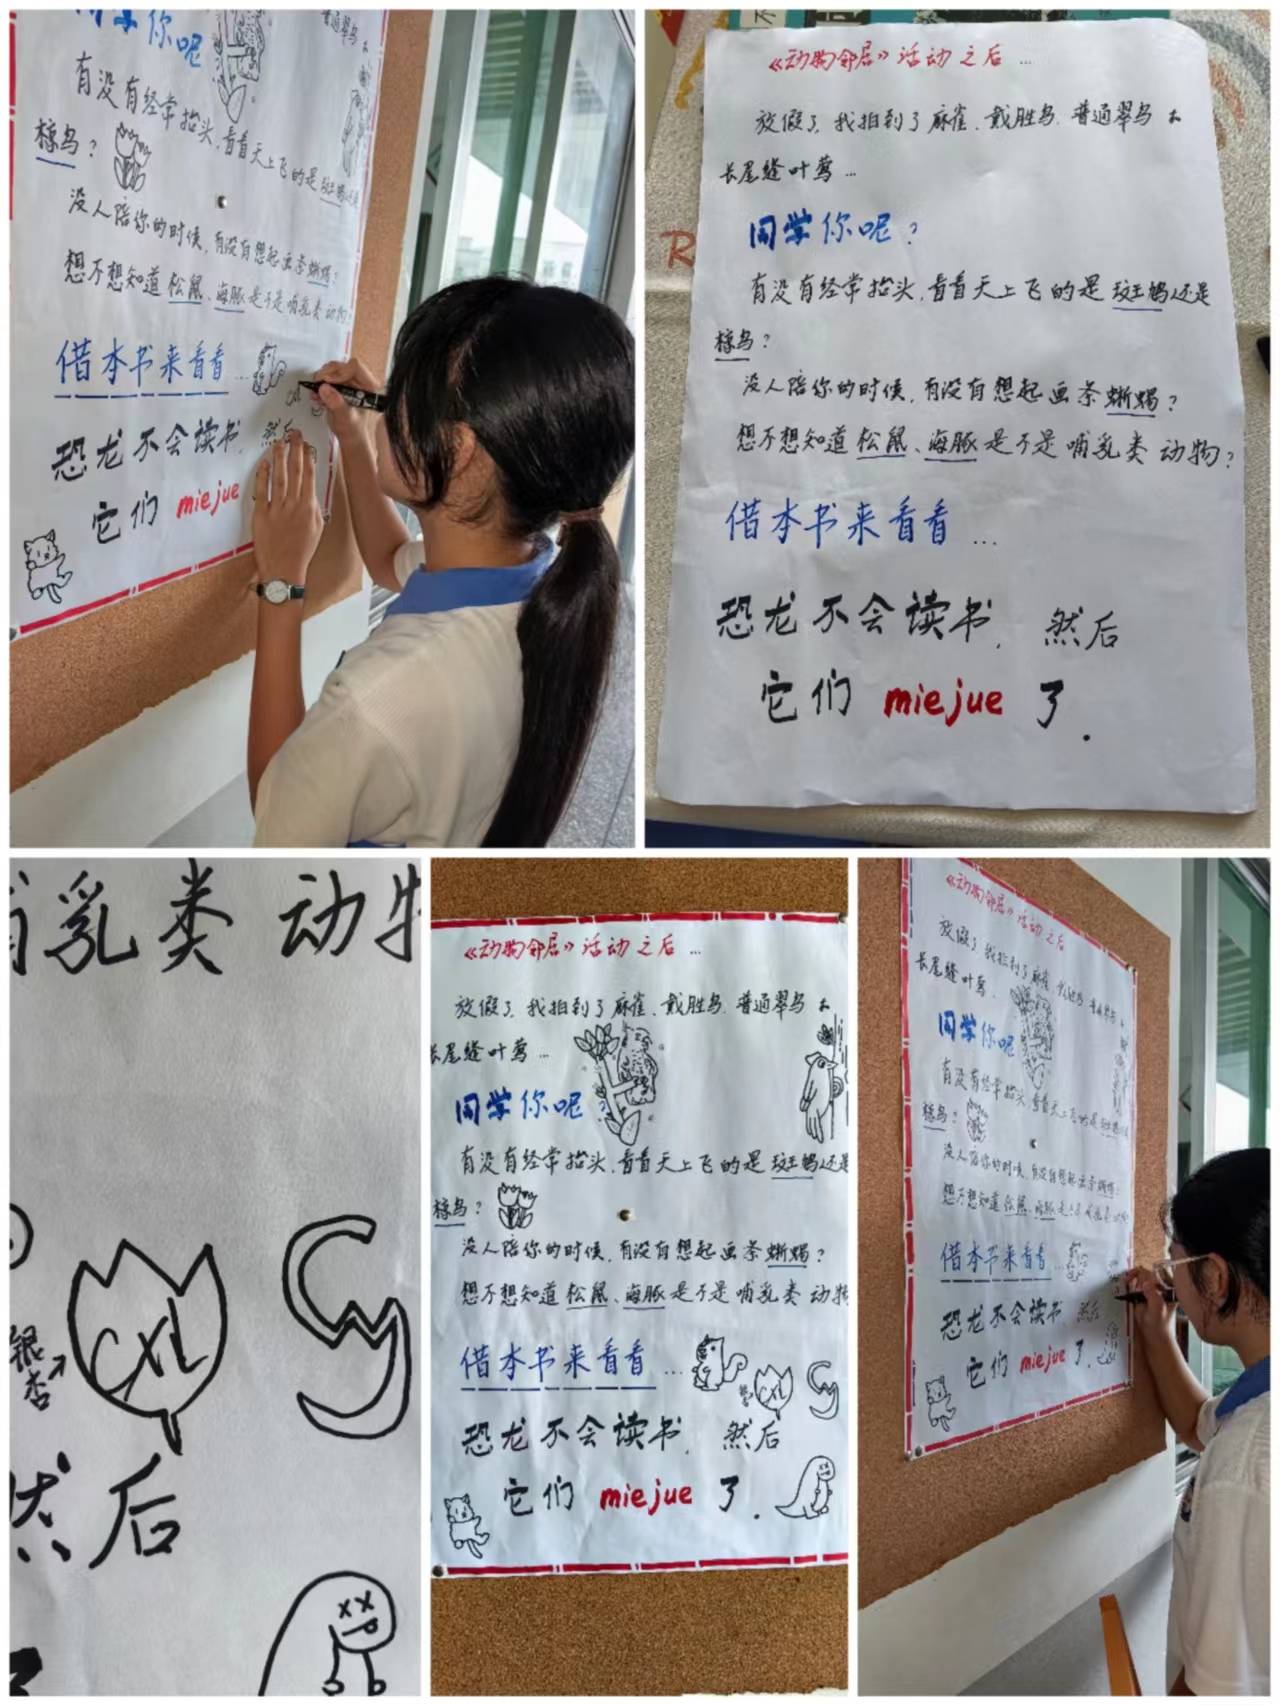 同学你呢
有没有经常抬头,看看天上飞的是斑鸠还是
椋鸟?
没人陪你的时候,有没有想起画条蜥蜴?
想不想知道松鼠、海豚是不是哺乳类动物?
借本书来看看...
恐龙不会读书,然后
它们 miejue
《动物邻居》活动之后...
放假了,我拍到了麻雀、戴胜鸟、普通翠鸟
长尾缝叶莺...
同学你呢?
有没有经常抬头,看看天上飞的是斑鸠还是
椋鸟?
没人陪你的时候,有没有想起画条蜥蜴?
想不想知道松鼠、海豚是不是哺乳类动物?
借本书来看看...
恐龙不会读书,然后
它们 miejue 了.
乳类动物
银杏
CXL
然后
《动物邻居》活动之后...
放假了,我拍到了麻雀、戴胜鸟、普通翠鸟
长尾缝叶莺...
同学你呢?
有没有经常抬头,看看天上飞的是斑鸠还是
椋鸟?
没人陪你的时候,有没有想起画条蜥蜴?
想不想知道松鼠、海豚是不是哺乳类动物
借本书来看看...
银杏
CXL
恐龙不会读书,然后
它们 miejue 了.
《动物邻居》活动之后
放假了,我拍到了麻雀
长尾缝叶莺
同学你呢
有没有经常抬头,看看天上飞的是
椋鸟?
没人陪你的时候,有没有想起画条蜥蜴
想不想知道松鼠、海豚是不是哺乳类
借本书来看看...
恐龙不会读书,然后
它们 miejue 了.